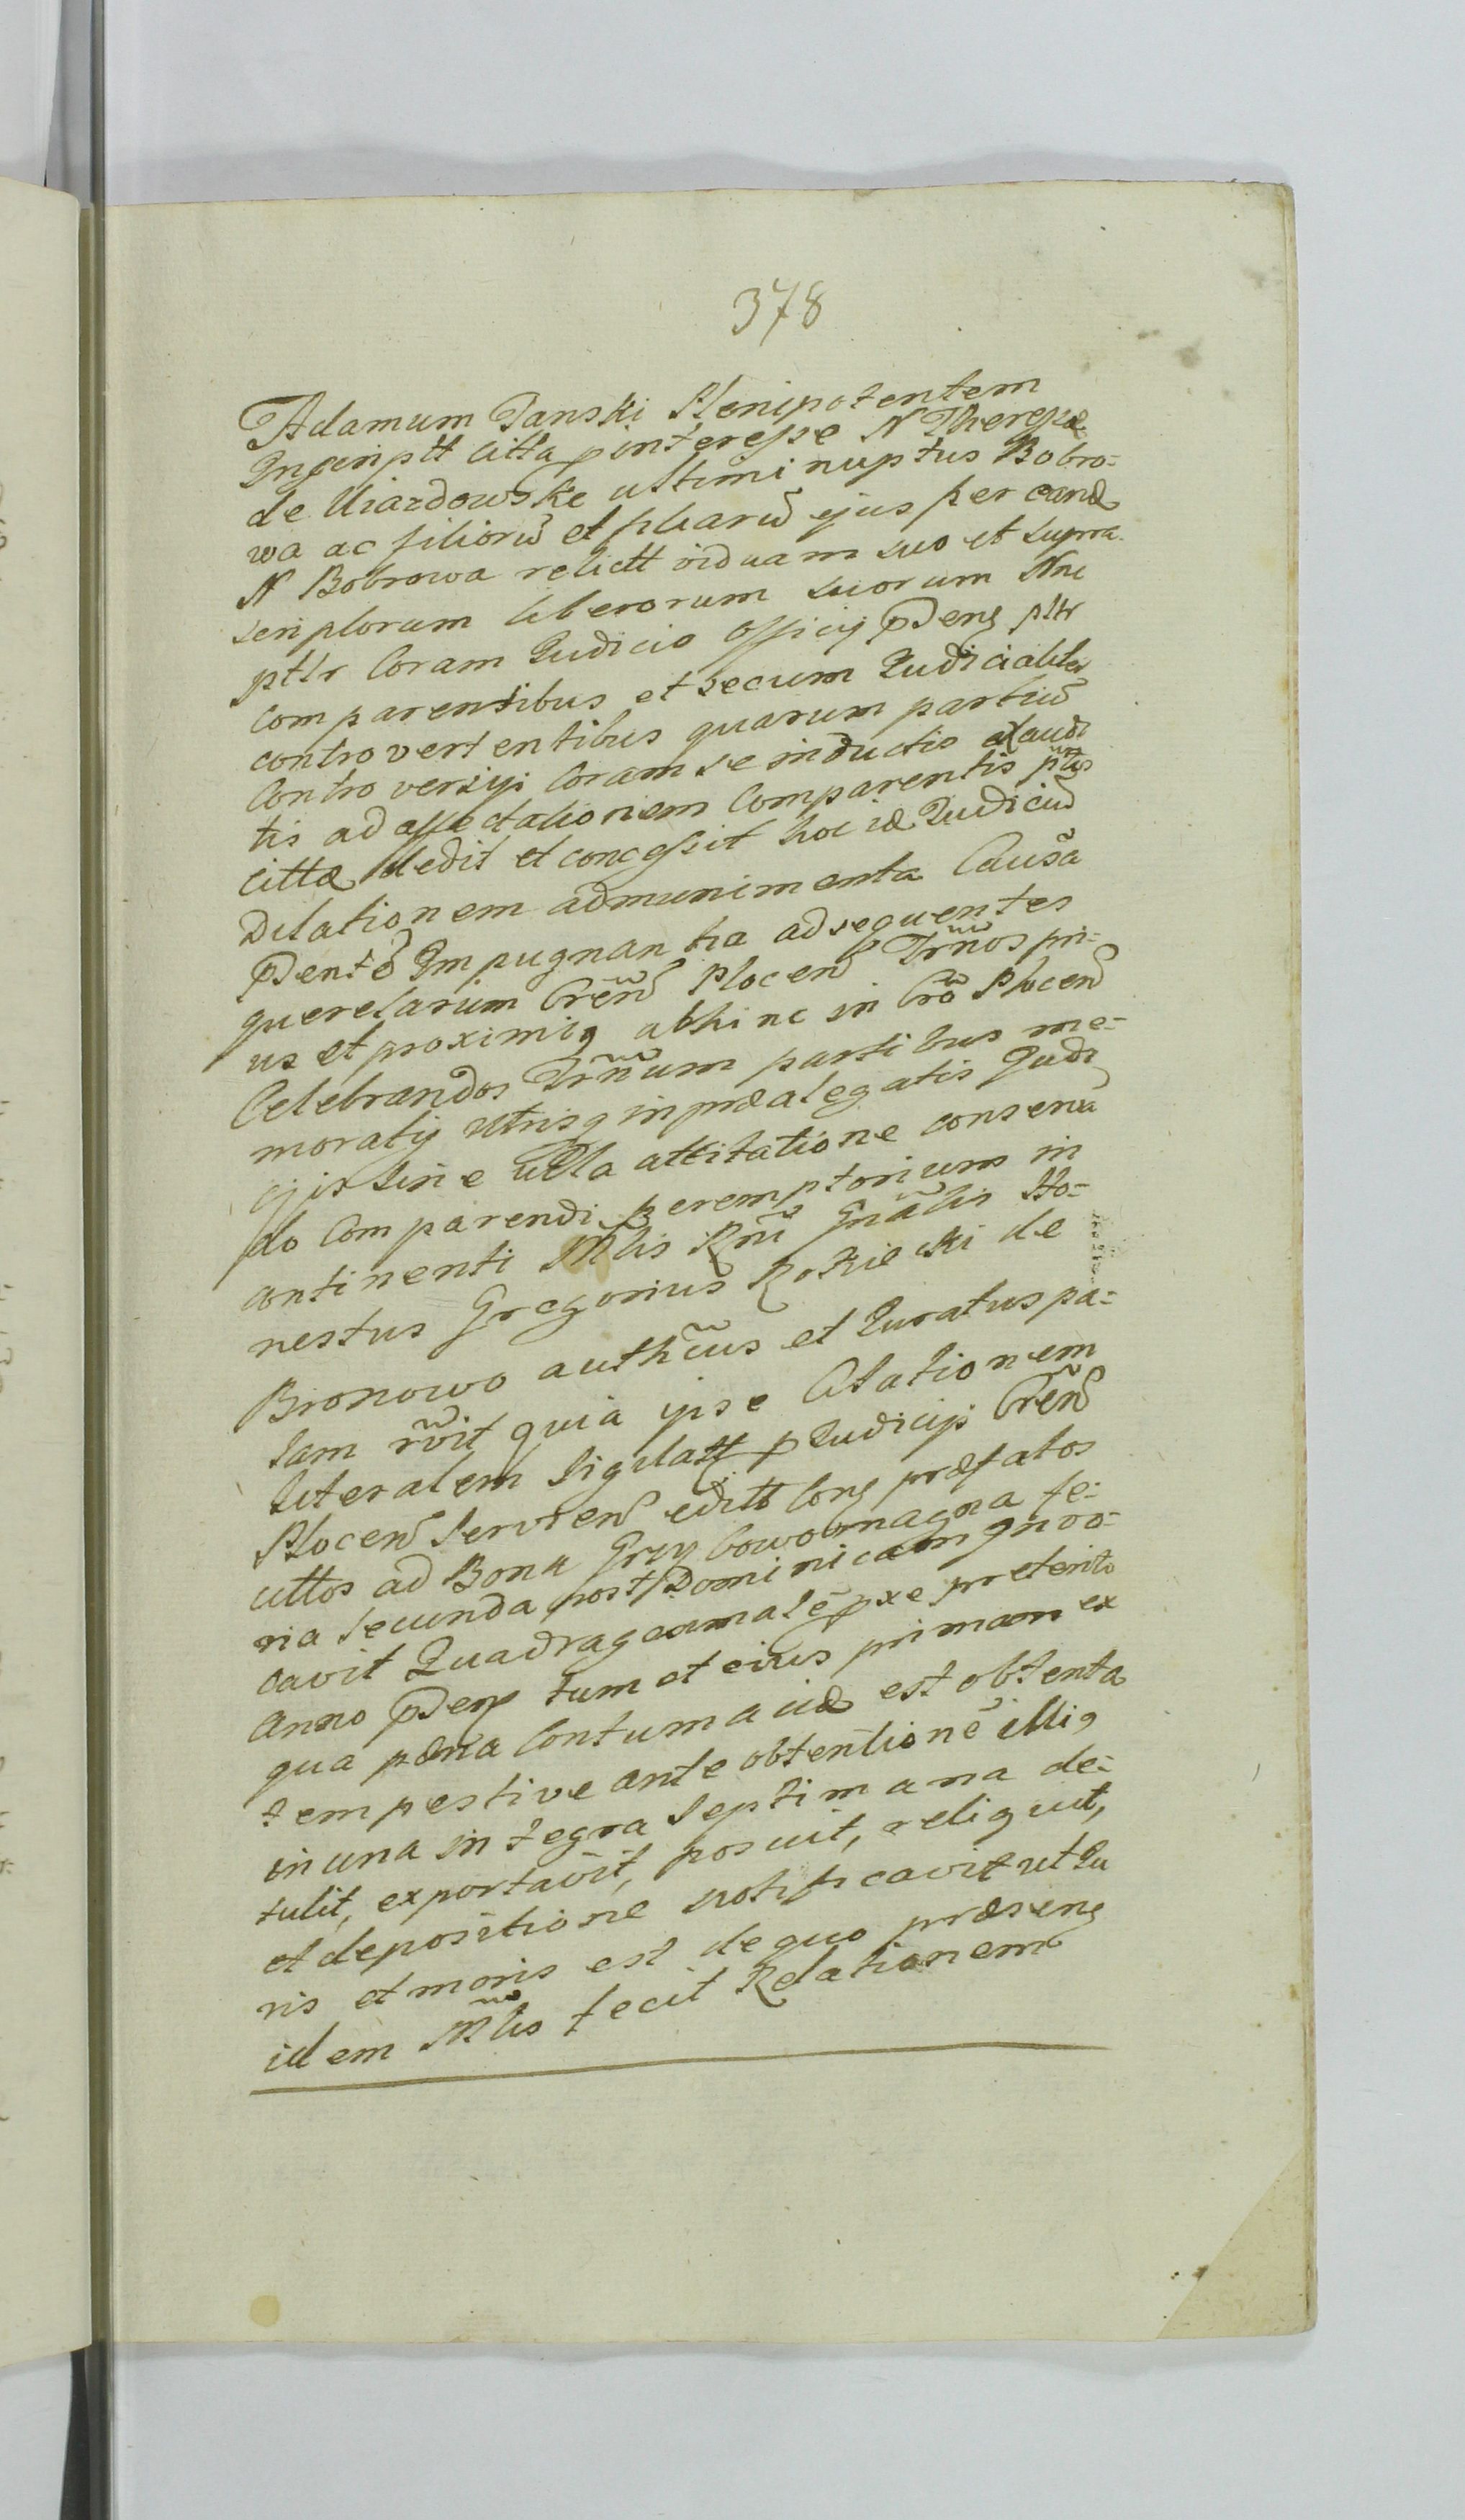 378
Adamum Danski Plenipotentem
Inscriptt Citta p interesse N Theressæ
de Uiazdowske ultimi nuptus Bobro-
wa ac filiorũ et filiarũ ejus per eand
N Bobrowa relictt viduam suo et supra
scriptorum liberorum suorum Nne
pttr Coram Judicio Officij Pdeng pttr
comparentibus et secum Judicialiter
controvertentibus quarum partiũ
Controversijs Coram se inductis exaudi
tis ad affectationem Comparentis
Cittæ dedit et concessit hoc id Judiciũ
Dilationem admunimenta Causa
Impugnantia ad sequentes
querelarum Crẽn Plocen Trm̃nos pri-
us et proximiq abhinc in Crõ Plocen
Celebrandos Trm̃num partibus me-
moratij utrisq in præalegatis Judi
cijs sine ulla attitatione conserua
do Comparendi peremptorium in
continenti Mlis Rni Gnãlis Ho-
nestus Gregorius Rokicki de
Bronowo authẽus et Juratus pa-
lam rõvit quia ipse Citationem
literalem Sigilatt p Judicij Crẽn
Plocen Servien editt Cong præfatos
cittos ad Bona Grzybowo magna fe-
ria secunda post Dominicam Invo-
cavit Quadragesimalẽ pxe preterito
Anno Pdeng tum et eius primam ex
qua pæna Contumaciæ est obtenta
tempestive ante obtentionẽ illiq
in una integra Septimana de-
tulit, exportavit, posuit, reliquit,
et depositione notificavit ut Ju
ris et moris est de quo præseng
idem Mlis fecit Relationem